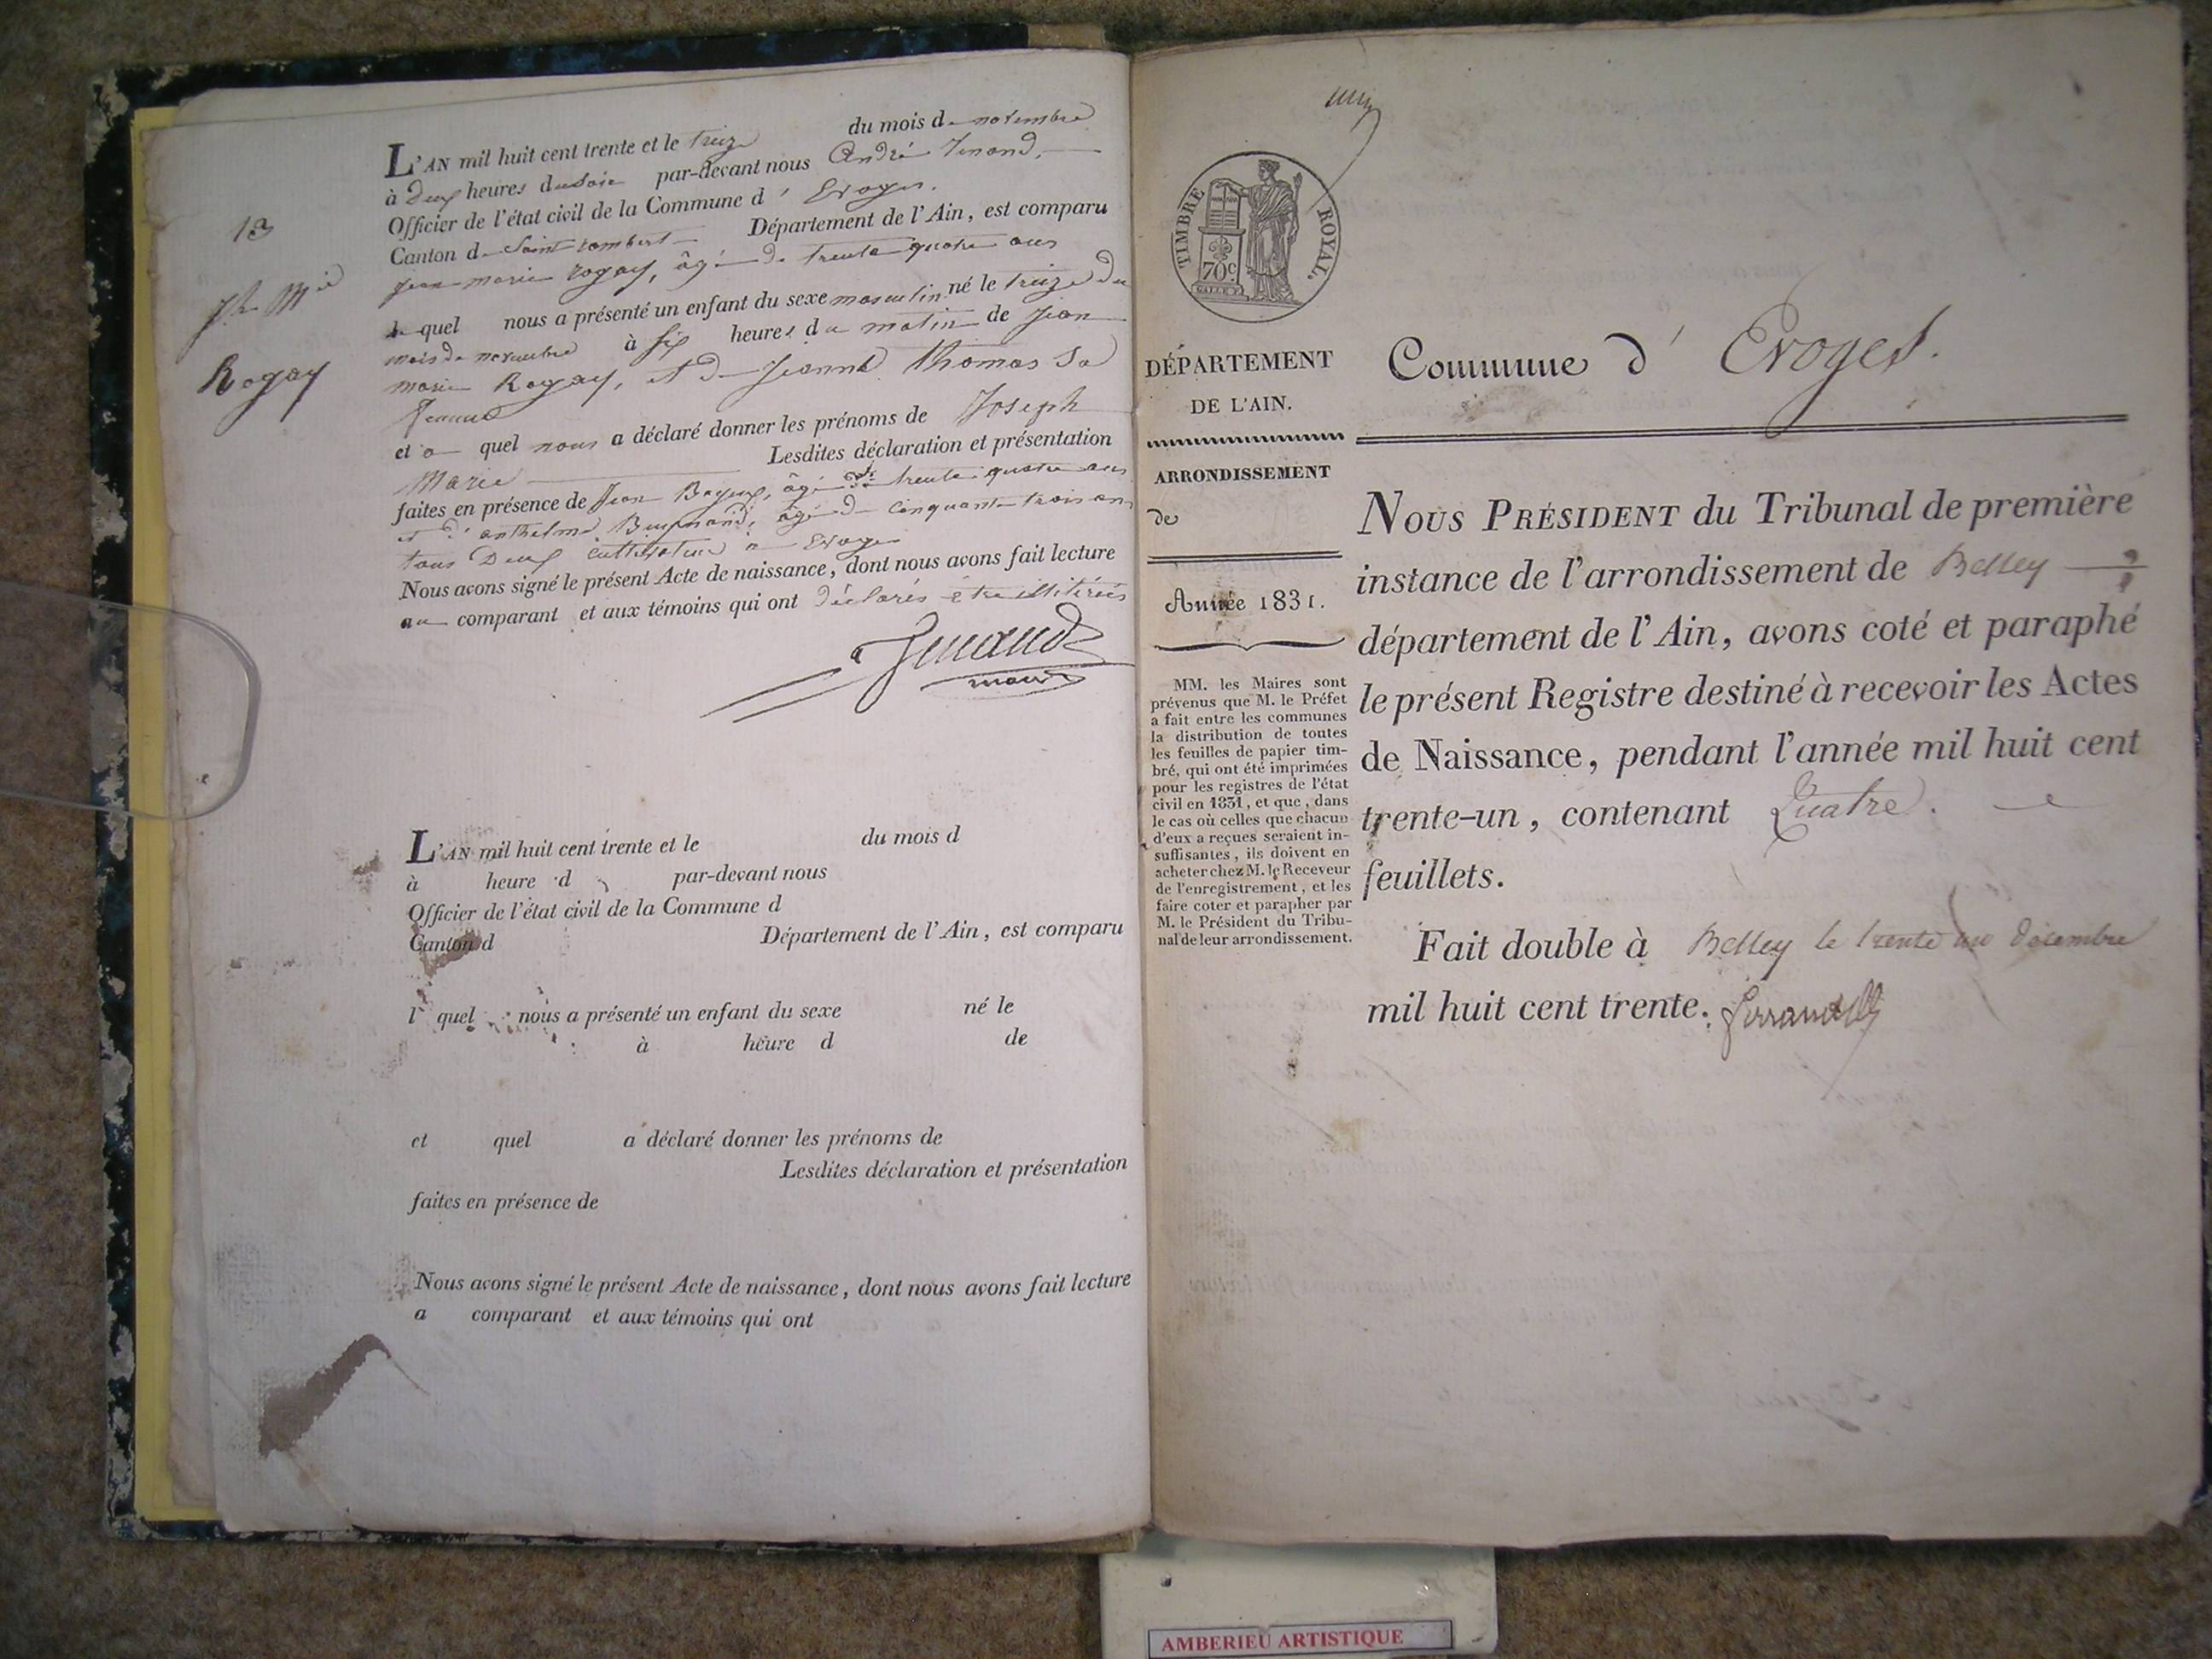 13
Jh Mie
Rogay
L'AN mil huit cent trente et le treize du mois de novembre
à Deux heures du Soir par-devant nous André Tenand,
Officier de l'état civil de la Commune d' Evoges.
Canton de Saint rambert Département de l'Ain, est comparu
jean marie rogay, âgé de trente quatre ans
le quel nous a présenté un enfant du sexe masculin né le treize du
mois de novembre à six heures du matin de jean
marie Rogay, et de jeanne thomas Sa
femme
et a quel nous a déclaré donner les prénoms de Joseph
Marie Lesdites déclaration et présentation
faites en présence de Jean âgé de trente quatre ans
et d'anthelme âgé de cinquante trois ans
tous Deux cultivateurs a Evoges
Nous avons signé le présent Acte de naissance, dont nous avons fait lecture
au comparant et aux témoins qui ont déclarés être illitérés
Tenand
maire
L'AN mil huit cent trente et le du mois d
à heure d par-devant nous
Officier de l'état civil de la Commune d
Canton d Département de l'Ain, est comparu
l quel nous a présenté un enfant du sexe né le
à heure d de
et quel a déclaré donner les prénoms de
Lesdites déclaration et présentation
faites en présence de
Nous avons signé le présent Acte de naissance, dont nous avons fait lecture
a comparant et aux témoins qui ont
TIMBRE ROYAL.
70c
DÉPARTEMENT
DE L'AIN.
ARRONDISSEMENT
de
Année 1831.
MM. les Maires sont
prévenus que M. le Préfet
a fait entre les communes
la distribution de toutes
les feuilles de papier tim-
bré, qui ont été imprimées
pour les registres de l'état
civil en 1831, et que, dans
le cas où celles que chacun
d'eux a reçues seraient in-
suffisantes, ils doivent en
acheter chez M. le Receveur
de l'enregistrement, et les
faire coter et parapher par
M. le Président du Tribu-
nal de leur arrondissement.
Commune d' Evoges.
NOUS PRÉSIDENT du Tribunal de première
instance de l'arrondissement de Belley
département de l'Ain, avons coté et paraphé
le présent Registre destiné à recevoir les Actes
de Naissance, pendant l'année mil huit cent
trente-un, contenant Quatre.
feuillets.
Fait double à Belley le trente un décembre
mil huit cent trente.
AMBERIEU ARTISTIQUE